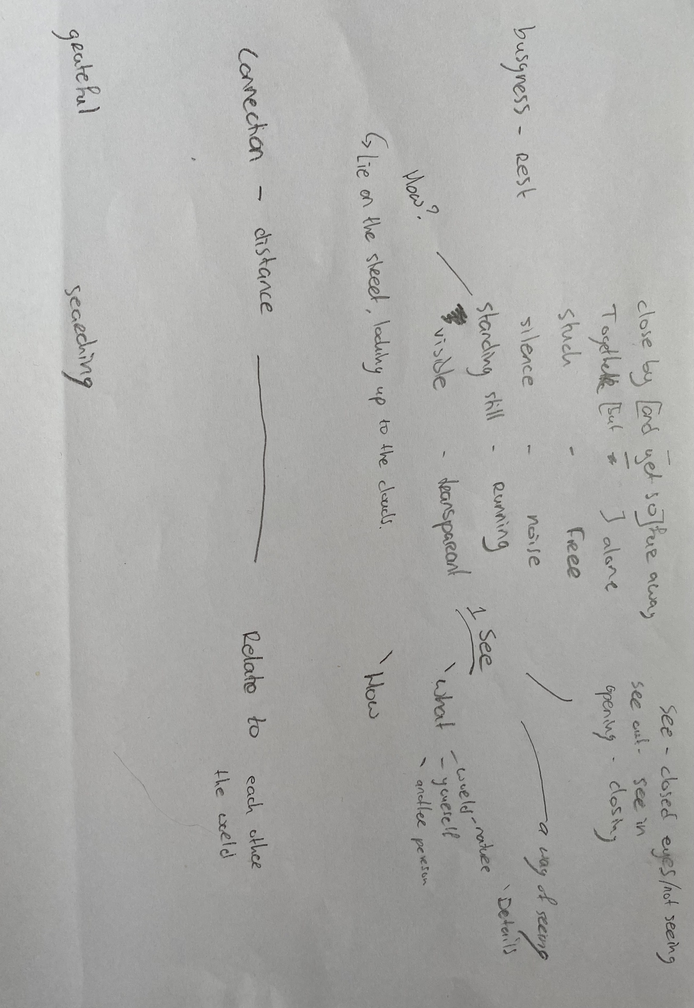 close by [and yet so] far away
Together [but ] alone
stuck - Free
busyness - Rest
silence - noise
standing still - Running
visible - transparent
How?
↳ Lie on the street, looking up to the clouds.
See - closed eyes/not seeing
see out - see in
opening - closing
a way of seeing
1 See
' Details
' what - world - nature
- yourself
' another person
' How
Connection - distance
Relate to each other
the world
grateful
searching